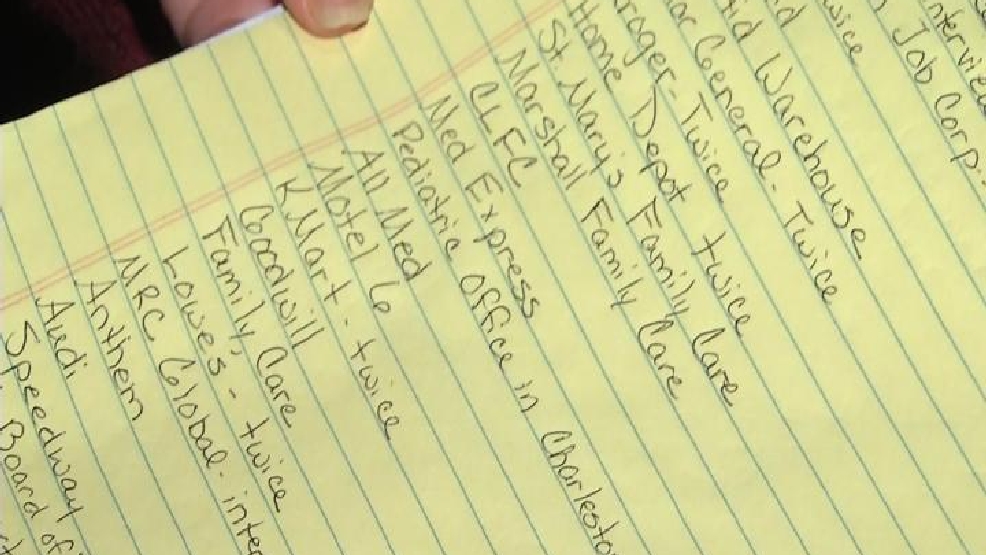 nterview
Job Corp..
wice
id Warehouse
ar General - Twice
roger - Twice
Home Depot twice
St Mary's Family Care
Marshall Family Care
CLFC
Med Express
Pediatric office in Charlesto
All Med
Motel 6
K Mart - twice
Goodwill
Family Care
Lowes - twice
MRC Global - inte
Anthem
Audi
Speedway
Board of